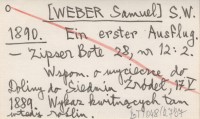 [WEBER Samuel] S.W.
1890. Ein erster Ausflug.
— Zipser Bote 28, nr 12: 2.
Wspom. o wycieczce do
Doliny do Siedmiu Źródeł 17 V
1889. Wykaz kwitnących tam
wtedy roślin.